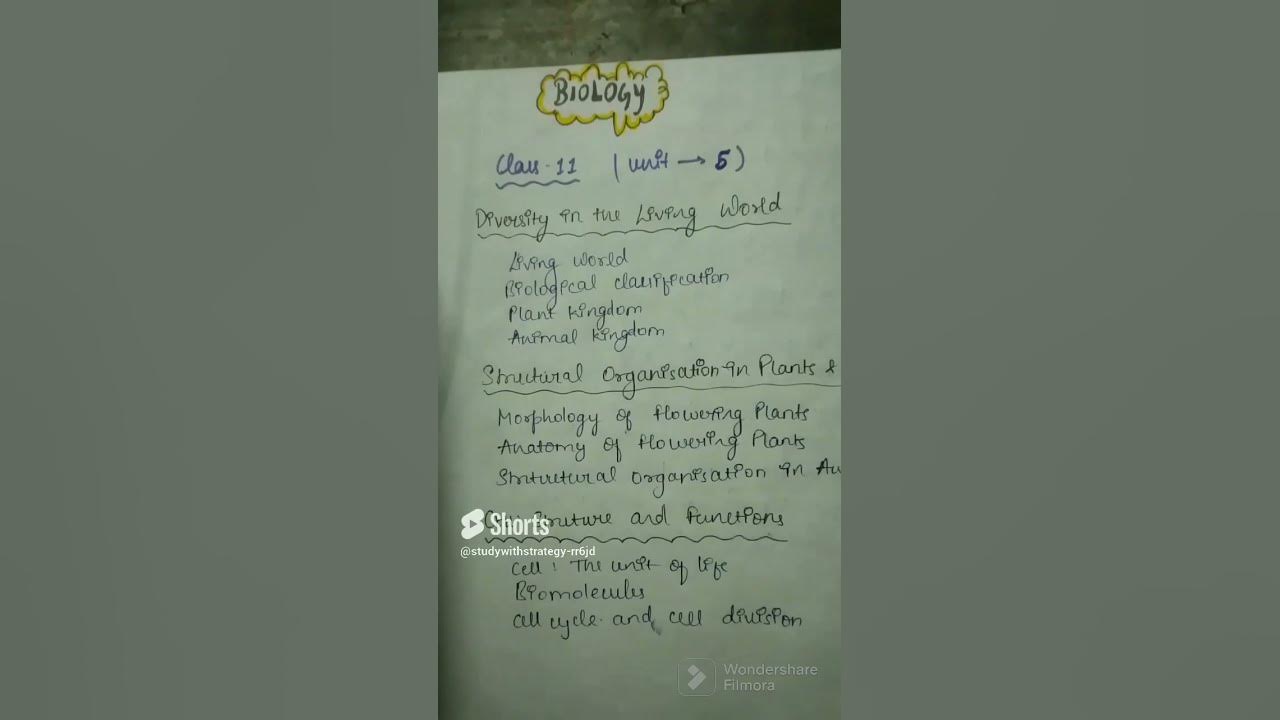 BIOLOGY
Class - 11 ( unit → 5 )
Diversity in the Living World
Living world
Biological classification
Plant kingdom
Animal kingdom
Structural Organisation in Plants &
Morphology of flowering Plants
Anatomy of flowering Plants
Structural organisation in
Shorts
and functions
@studywithstrategy-rr6jd
Cell : The unit of life
Biomolecules
Cell cycle and cell division
Wondershare
Filmora